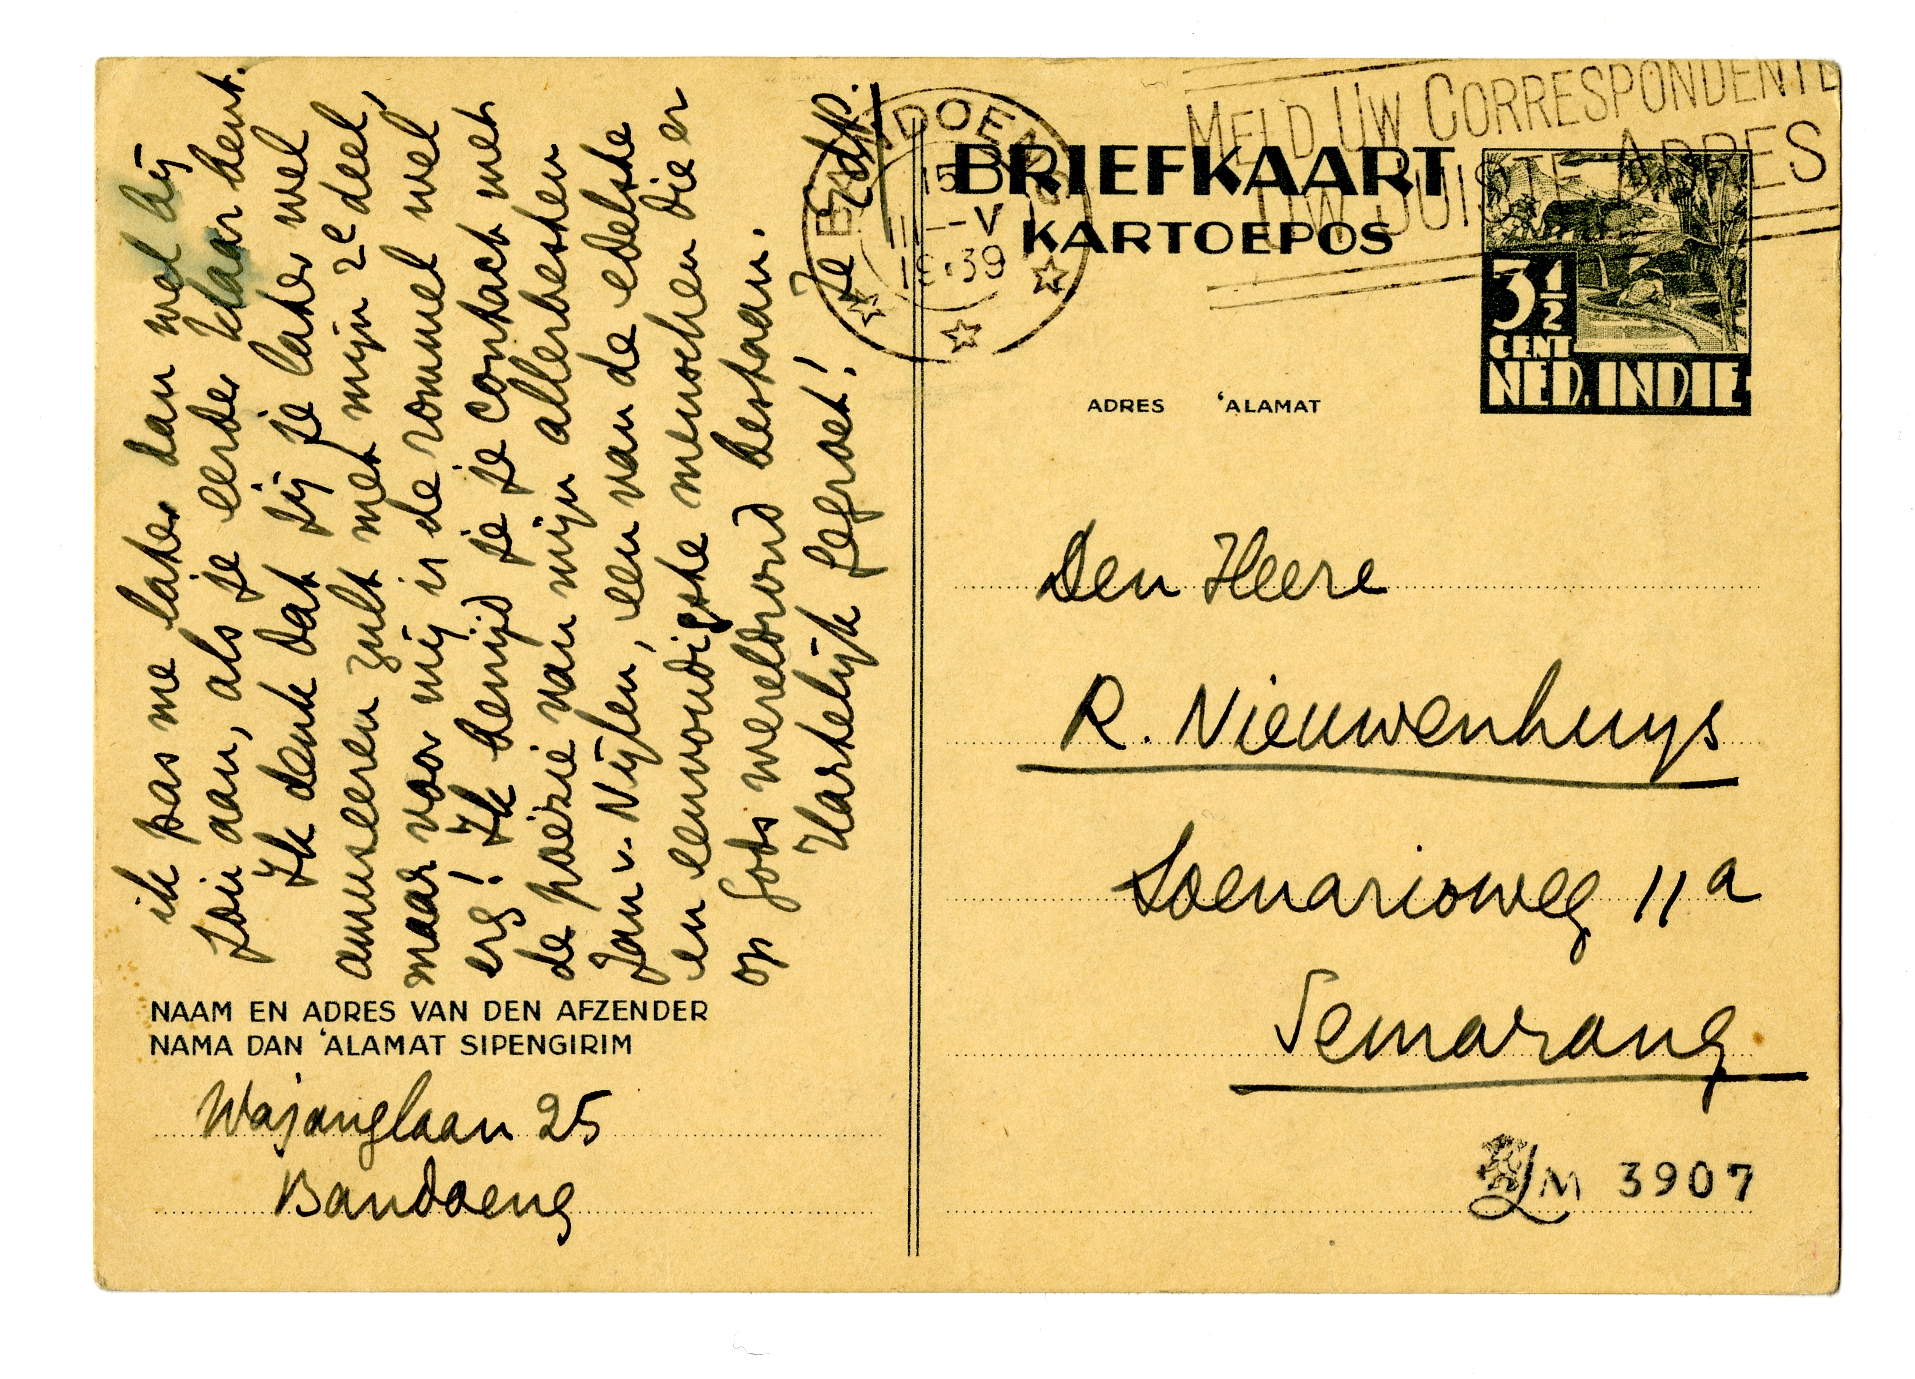 ik pas me later dan wel bij
jou aan, als je eerder klaar bent.
Ik denk dat jij je later wel
amuseeren zult met mijn 2e deel,
maar voor mij is de rommel wel
erg! Ik benijd je je contact met
de poëzie van mijn allerbesten
Jan v. Nijlen, een van de edelste
en eenvoudigste menschen die er
op Gods wereldrond bestaan.
Hartelijk gegroet! Je EdP.
NAAM EN ADRES VAN DEN AFZENDER
NAMA DAN 'ALAMAT SIPENGIRIM
Wajanglaan 25
Bandoeng
BANDOENG
15
11-V
19·39
MELD UW CORRESPONDENTE
UW JUISTE ADRES
BRIEFKAART
KARTOEPOS
3½
CENT
NED. INDIE
ADRES 'ALAMAT
Den Heere
R. Nieuwenhuys
Soenarioweg 11a
Semarang
LM 3907